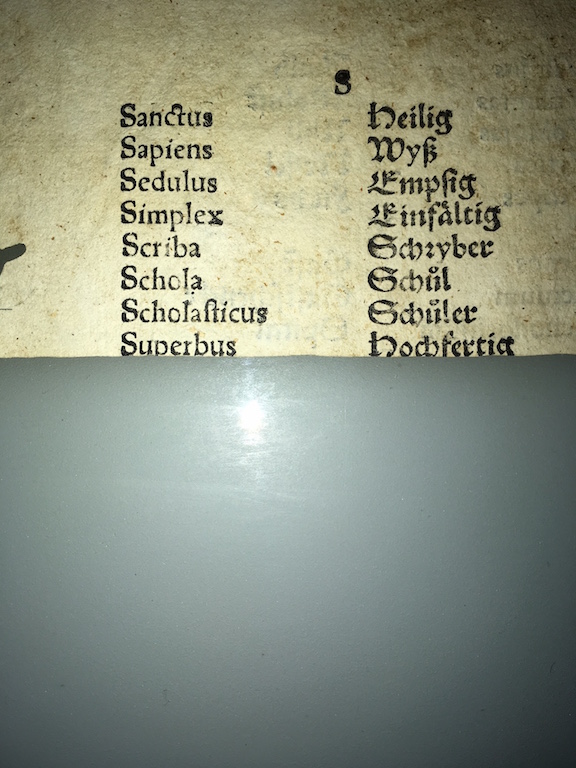 S
Sanctus Heilig
Sapiens Wyß
Sedulus Empſig
Simplex Einfaͤltig
Scriba Schꝛyber
Schola Schuͦl
Scholaſticus Schuͦler
Superbus Hochfertig